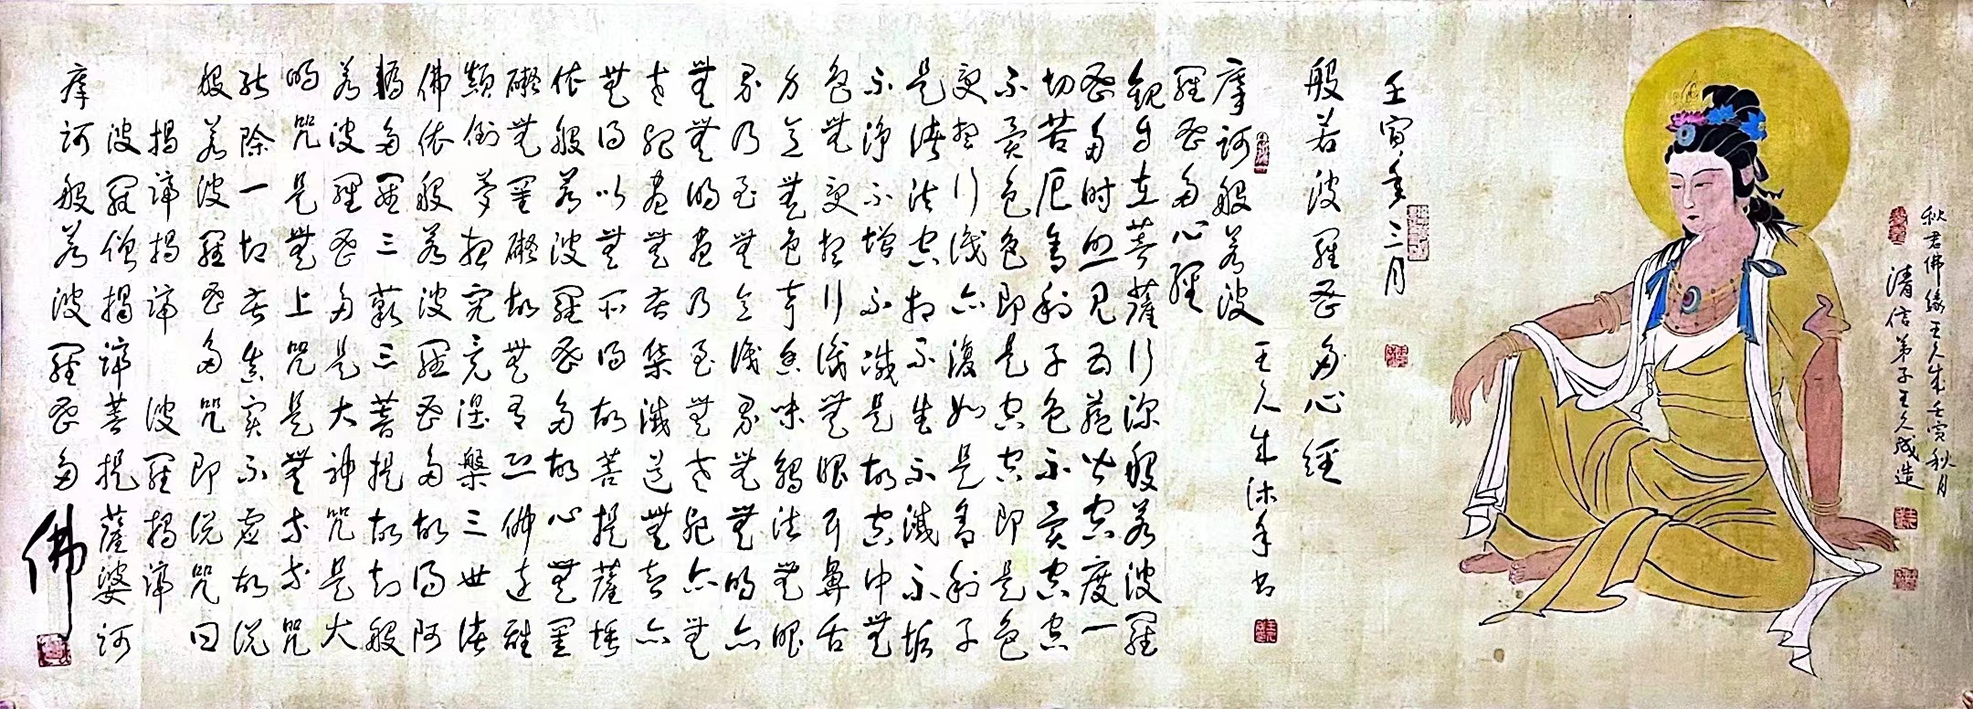 秋君佛缘王久成壬寅秋月
清信弟子王久成造
壬寅年三月
般若波羅蜜多心經
摩訶般若波
羅蜜多心經
王久成沐手书
觀自在菩薩行深般若波羅
蜜多時照見五蕴皆空度一
切苦厄舍利子色不異空空
不異色色即是空空即是色
受想行識亦復如是舍利子
是諸法空相不生不滅不垢
不淨不增不减是故空中無
色無受想行識無眼耳鼻舌
身意無色声香味觸法無眼
界乃至無意識界無無明亦
無無明盡乃至無老死亦無
老死盡無苦集滅道無智亦
無得以無所得故菩提薩埵
依般若波羅蜜多故心無罣
礙無罣礙故無有恐怖遠離
顛倒夢想究竟涅槃三世諸
佛依般若波羅蜜多故得阿
耨多羅三藐三菩提故知般
若波羅蜜多是大神咒是大
明咒是無上咒是無等等咒
能除一切苦真实不虚故说
般若波羅蜜多咒即说咒曰
揭諦揭諦 波羅揭諦
波羅僧揭諦菩提薩婆訶
摩訶般若波羅蜜多
佛